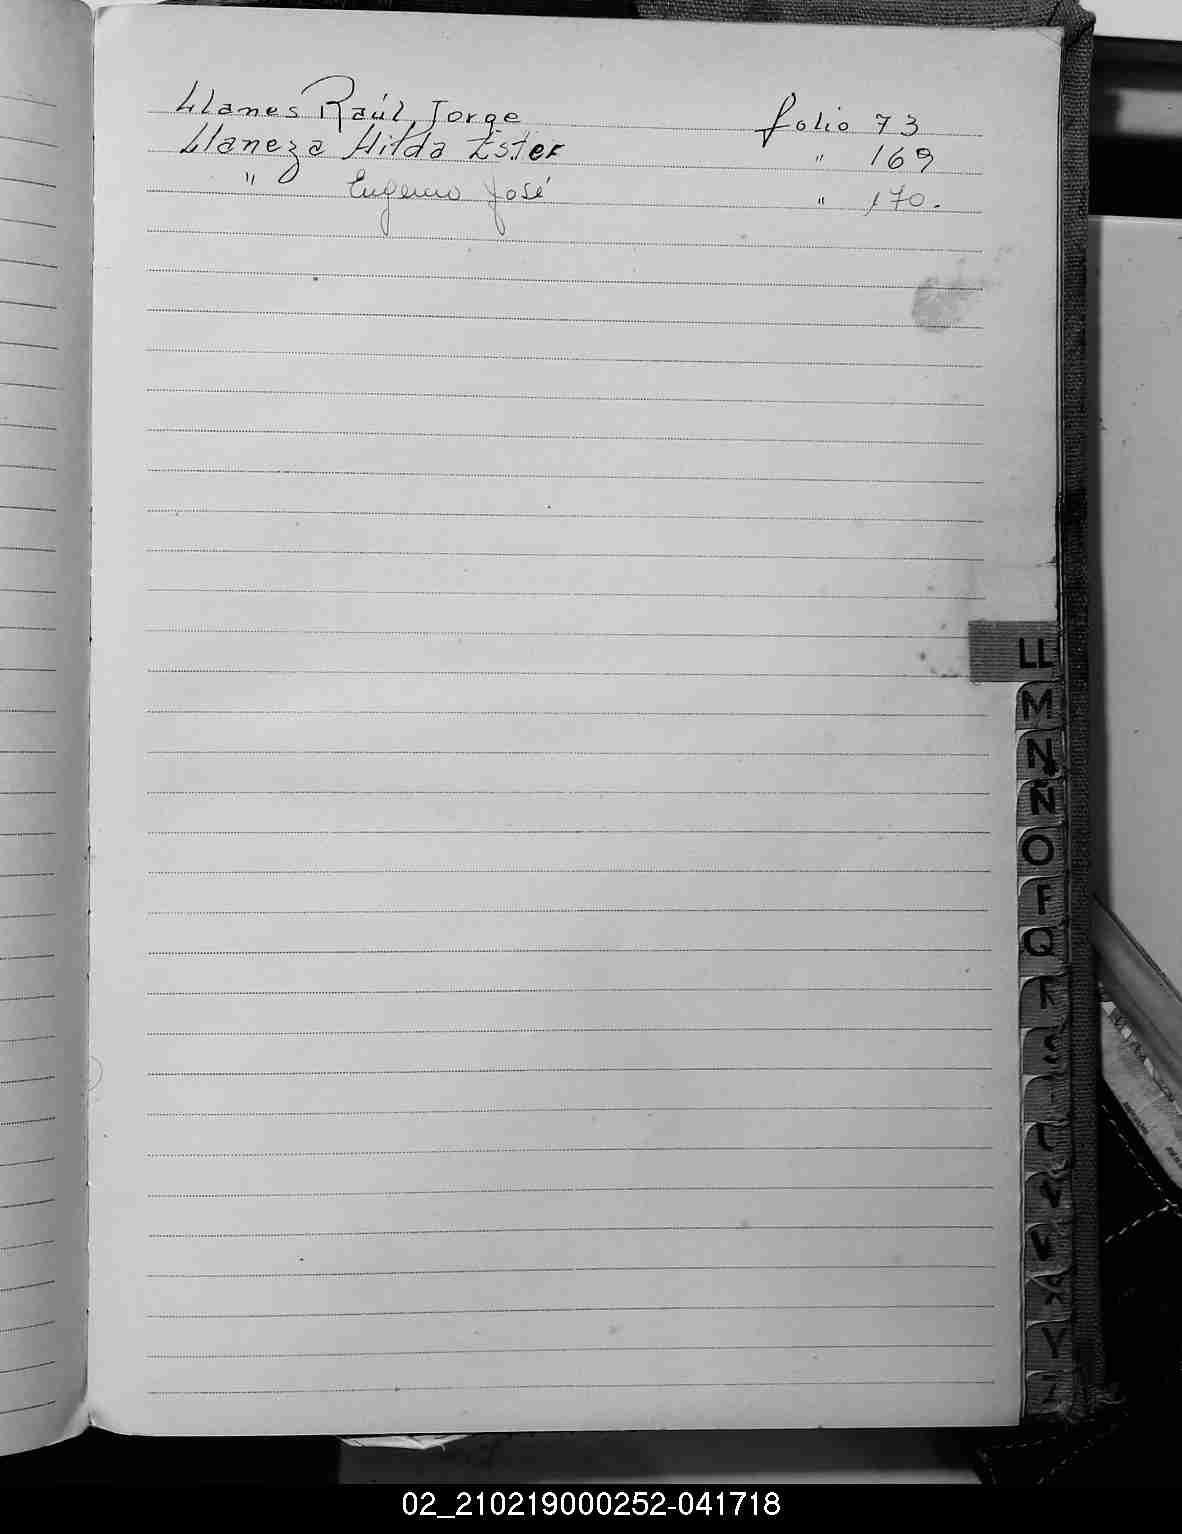 Llanes Raúl Jorge folio 73
Llaneza Hilda Ester " 169
" Eugenio José " 170.
LL
M
N
Ñ
O
P
Q
R
S
T
U
V
X
Y
02_210219000252-041718